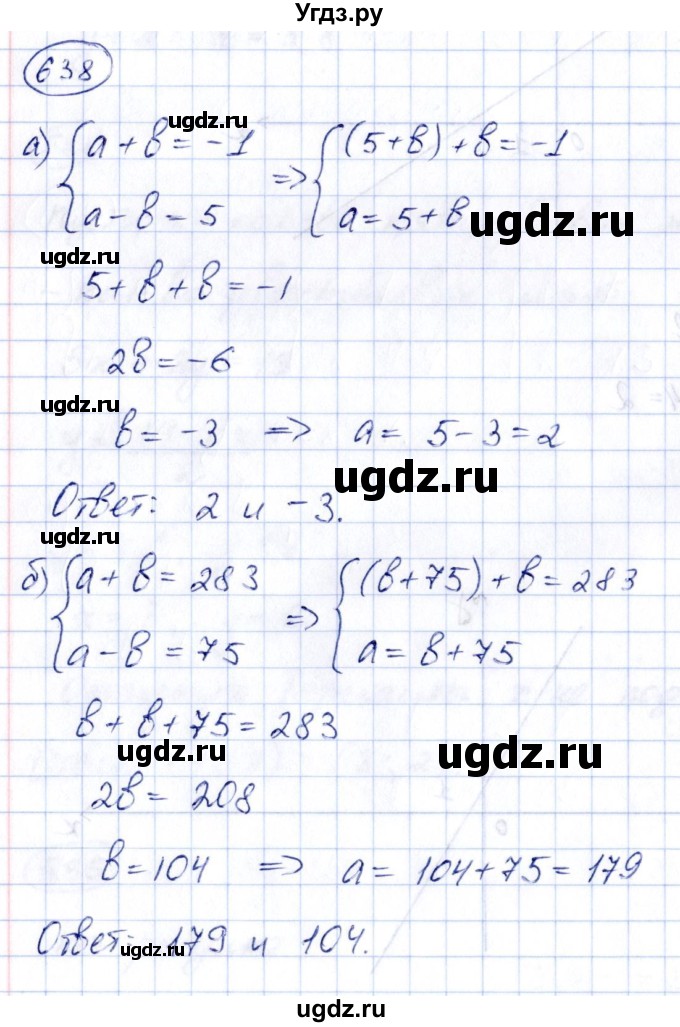 Угдз.ру
638
ugdz.ru
а) { a + b = -1 => { (5+b) + b = -1
a - b = 5 a = 5 + b
ugdz.ru
ugdz.ru
5 + b + b = -1
2b = -6
ugdz.ru
b = -3 => a = 5 - 3 = 2
ugdz.ru
Ответ: 2 и -3.
ugdz.ru
б) { a + b = 283 => { (b+75) + b = 283
a - b = 75 a = b + 75
b + b + 75 = 283
ugdz.ru
ugdz.ru
2b = 208
b = 104 => a = 104 + 75 = 179
Ответ: 179 и 104.
ugdz.ru
ugdz.ru